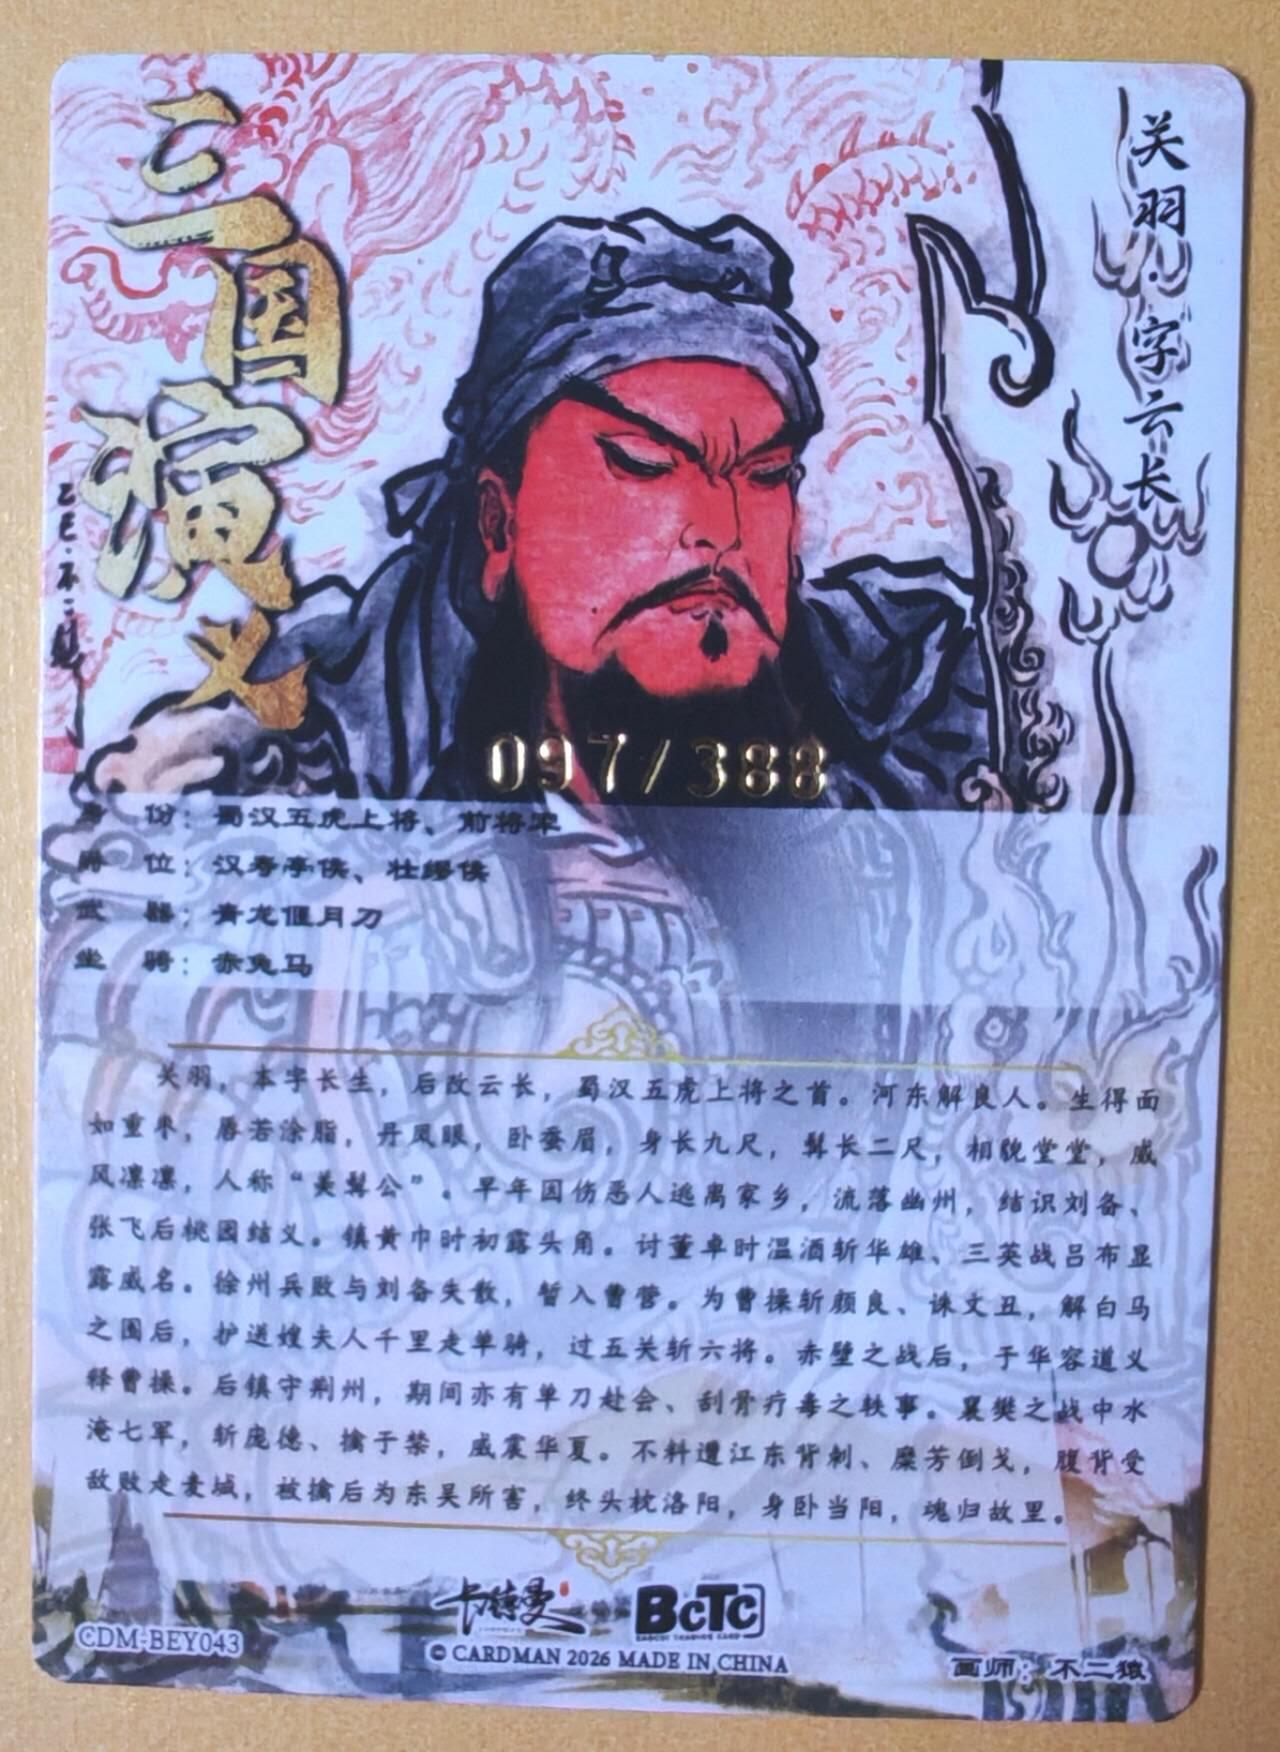 三国演义
乙巳·不二猿
关羽·字云长
097/388
身 份：蜀汉五虎上将、前将军
爵 位：汉寿亭侯、壮缪侯
武 器：青龙偃月刀
坐 骑：赤兔马
关羽，本字长生，后改云长，蜀汉五虎上将之首。河东解良人。生得面
如重枣，唇若涂脂，丹凤眼，卧蚕眉，身长九尺，髯长二尺，相貌堂堂，威
风凛凛，人称“美髯公”。早年因伤恶人逃离家乡，流落幽州，结识刘备、
张飞后桃园结义。镇黄巾时初露头角。讨董卓时温酒斩华雄、三英战吕布显
露威名。徐州兵败与刘备失散，暂入曹营。为曹操斩颜良、诛文丑，解白马
之围后，护送嫂夫人千里走单骑，过五关斩六将。赤壁之战后，于华容道义
释曹操。后镇守荆州，期间亦有单刀赴会、刮骨疗毒之轶事。襄樊之战中水
淹七军，斩庞德、擒于禁，威震华夏。不料遭江东背刺、糜芳倒戈，腹背受
敌败走麦城，被擒后为东吴所害，终头枕洛阳，身卧当阳，魂归故里。
卡德曼 BCTC
CDM-BEY043
© CARDMAN 2026 MADE IN CHINA
画师：不二猿